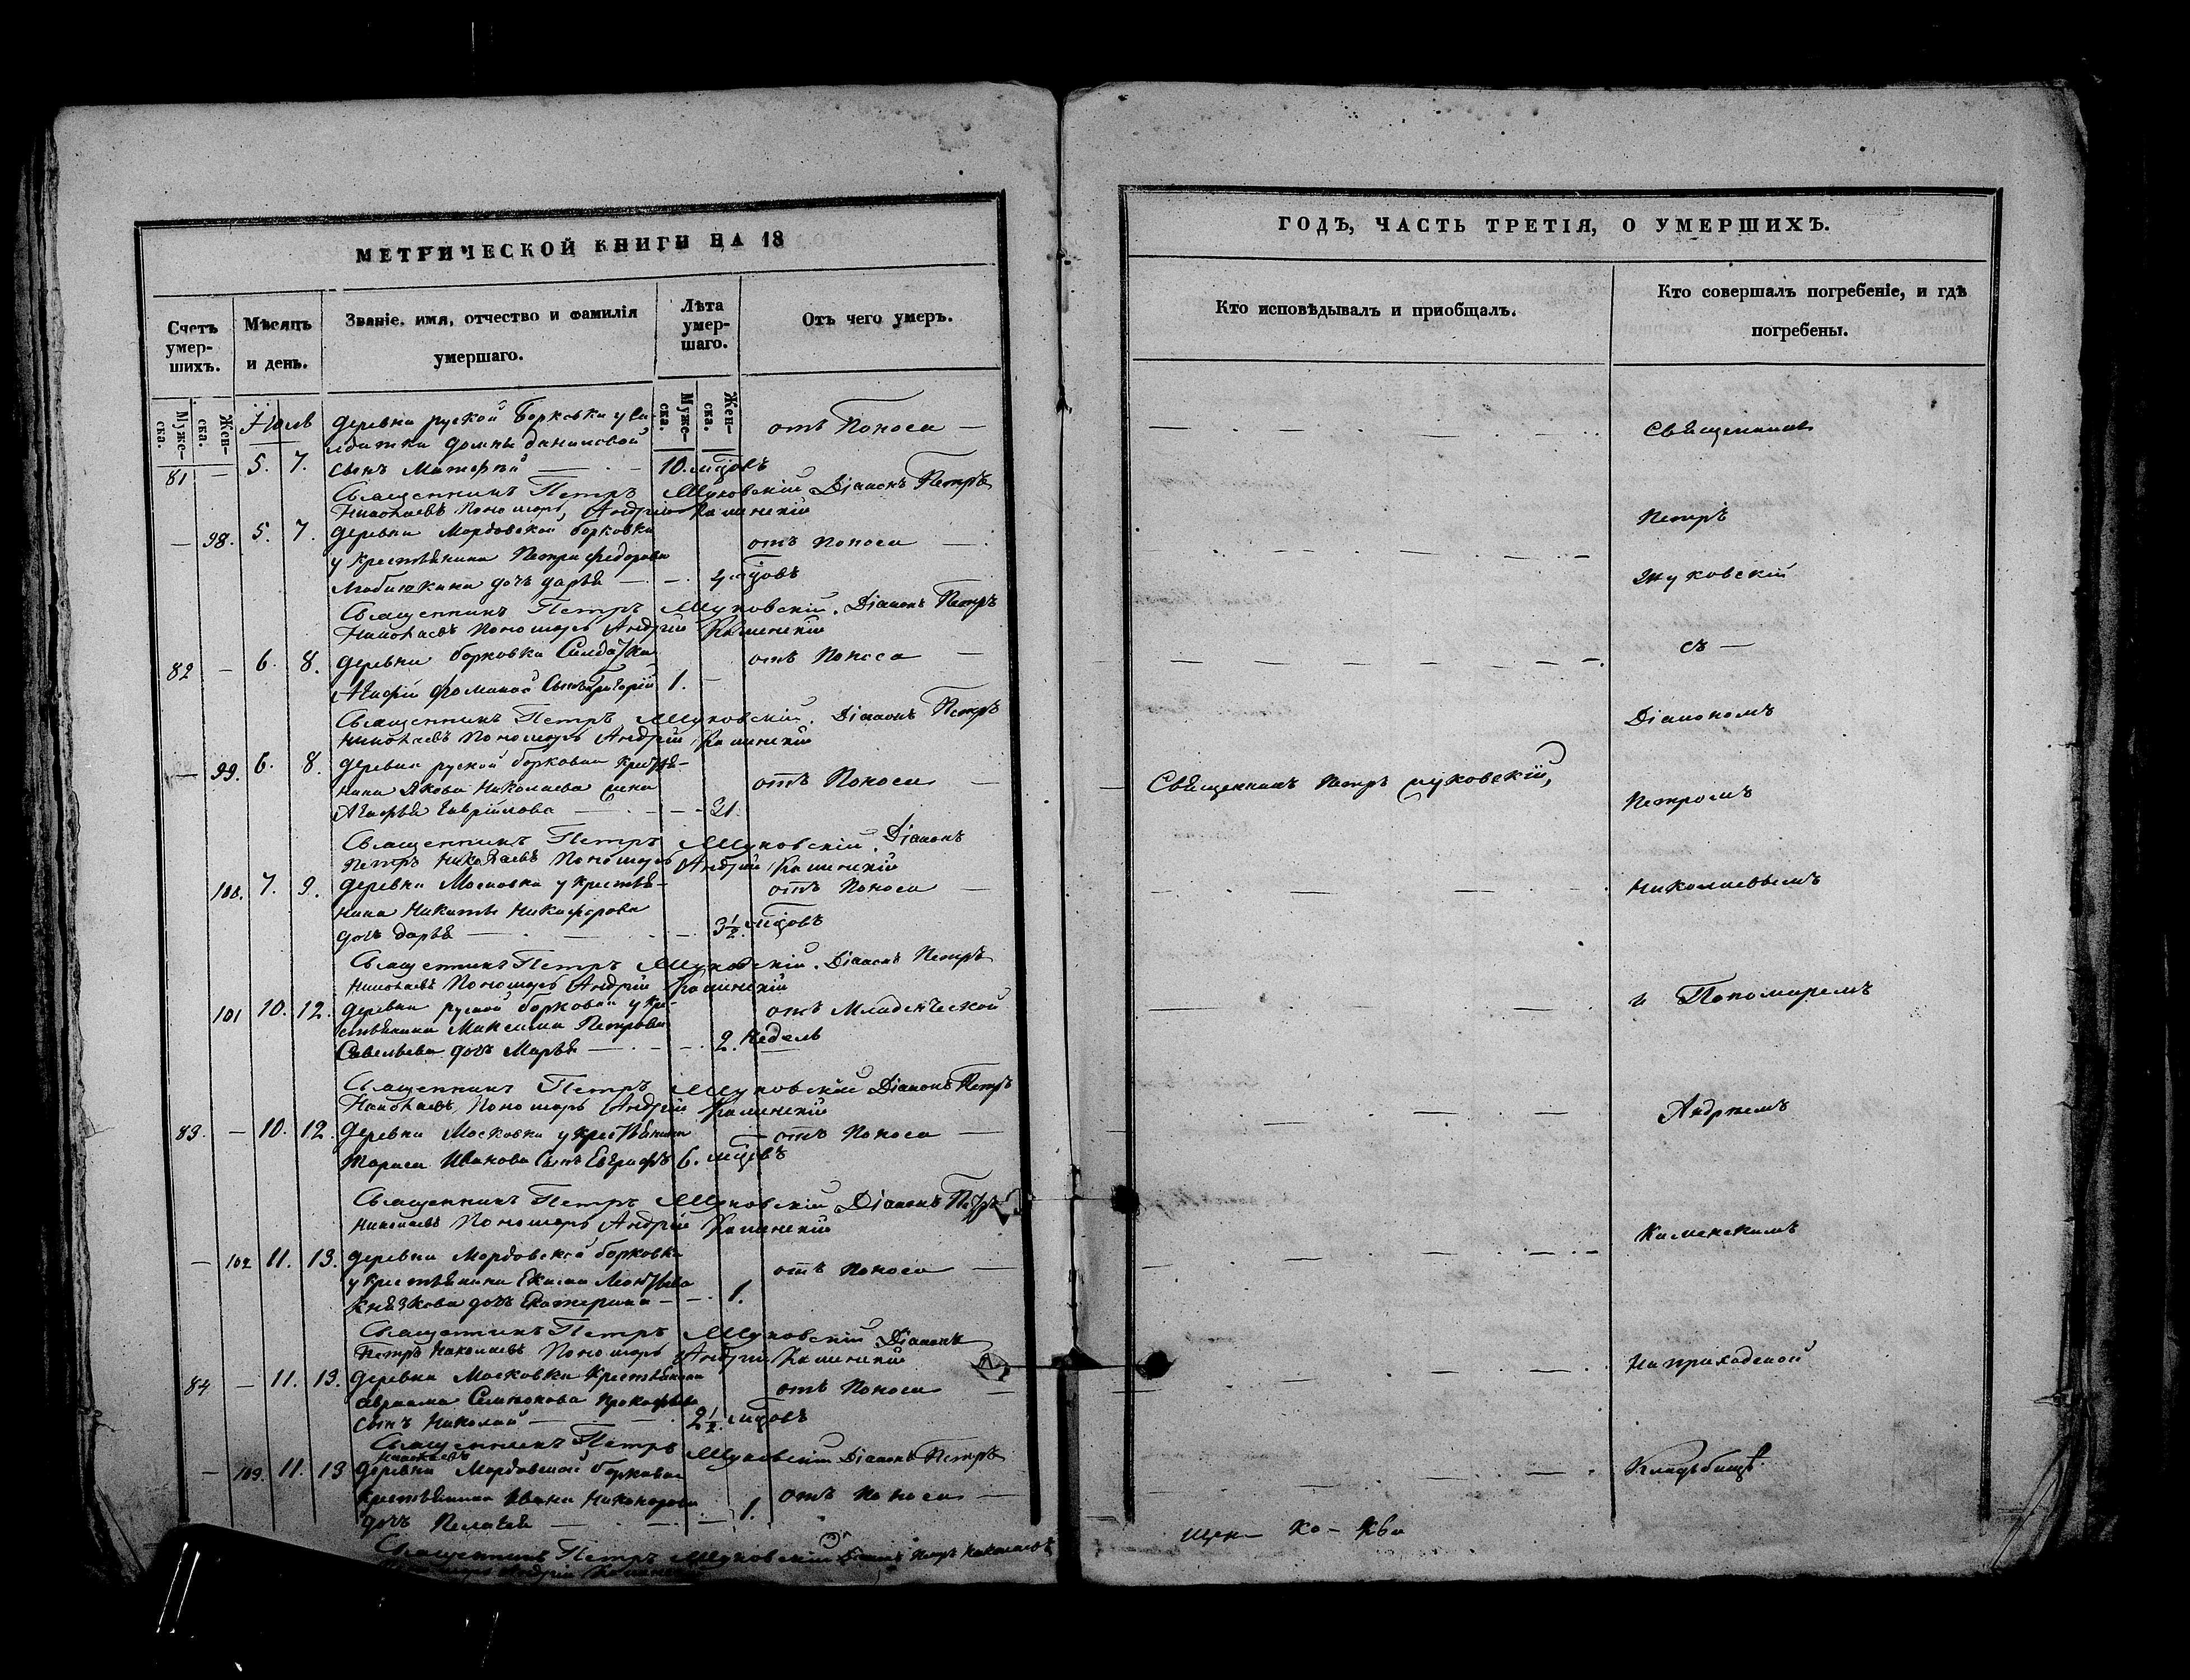 МЕТРИЧЕСКОЙ КНИГИ НА 18
Счетъ умер-шихъ.
Мѣсяцъ и день.
Званіе, имя, отчество и фамилія умершаго.
Лѣта умер-шаго.
Отъ чего умеръ.
Муже-ска.
Жен-ска.
Муже-ска.
Жен-ска.
Іюль
81 — 5. 7.
деревни руской Борковки у са-
лдатки Домны Даниловой
сынъ Матерѣй — 10. мцовъ
отъ Поноса —
Священникъ Петръ Жуковскій Діаконъ Петръ
Николаевъ Пономарь Андрій Каминскій
— 98. 5. 7.
деревни Мордовской борковки
у крестьянина Петра Федорова
дочь Дарья — 4 мцовъ
отъ Поноса —
Священникъ Петръ Жуковскій. Діаконъ Петръ
Николаевъ Пономарь Андрій Каминскій
82 — 6. 8.
деревни борковки Салдатки
Агафіи Фоминой Сынъ Григорій 1. —
отъ Поноса —
Священникъ Петръ Жуковскій. Діаконъ Петръ
Николаевъ Пономарь Андрій Каминскій
— 99. 6. 8.
деревни руской борковки крестья-
нина Якова Николаева жена
Агафья Гаврилова — 31.
отъ Поноса —
Священникъ Петръ Жуковскій. Діаконъ
Петръ Николаевъ Пономарь Андрій Каминскій
100. 7. 9.
деревни Московки у крестья-
нина Никиты Никифорова
дочь Дарья — 3½ мцовъ
отъ Поноса —
Священникъ Петръ Жуковскій. Діаконъ Петръ
Николаевъ Пономарь Андрій Каминскій
101 10. 12.
деревни руской борковки у кре-
стьянина Максима Петрова
Савельева дочь Марья — 2. недель
отъ Младенческой
Священникъ Петръ Жуковскій Діаконъ Петръ
Николаевъ Пономарь Андрій Каминскій
83. — 10. 12.
деревни Московки у крестьянина
Тараса Иванова Сынъ Евграфъ 6. мцовъ
отъ Поноса —
Священникъ Петръ Жуковскій Діаконъ Петръ
Николаевъ Пономарь Андрій Каминскій
— 102 11. 13.
деревни Мордовской борковки
у крестьянина Екима Леонтьева
Князкова дочь Екатерина — 1.
отъ Поноса —
Священникъ Петръ Жуковскій Діаконъ
Петръ Николаевъ Пономарь Андрій Каминскій
84 — 11. 13.
деревни Московки Крестьянина
Авраама Семионова Прокофьева
сынъ Николай — 2½ мцовъ
отъ Поноса —
Священникъ Петръ Жуковскій Діаконъ Петръ
Николаевъ
— 103. 11. 13
деревни Мордовской борковки
Крестьянина Ивана Никонорова
дочь Пелагея — 1.
отъ Поноса —
Священникъ Петръ Жуковскій Діаконъ Петръ Николаевъ
Пономарь Андрій Каминскій
ГОДЪ, ЧАСТЬ ТРЕТІЯ, О УМЕРШИХЪ.
Кто исповѣдывалъ и приобщалъ.
Кто совершалъ погребеніе, и гдѣ погребены.
Священникъ Петръ Жуковскій,
Священникъ
Петръ
Жуковскій
съ —
Діакономъ
Петромъ
Николаевымъ
и Пономаремъ
Андрѣемъ
Каменскимъ
На приходской
Кладьбищѣ.